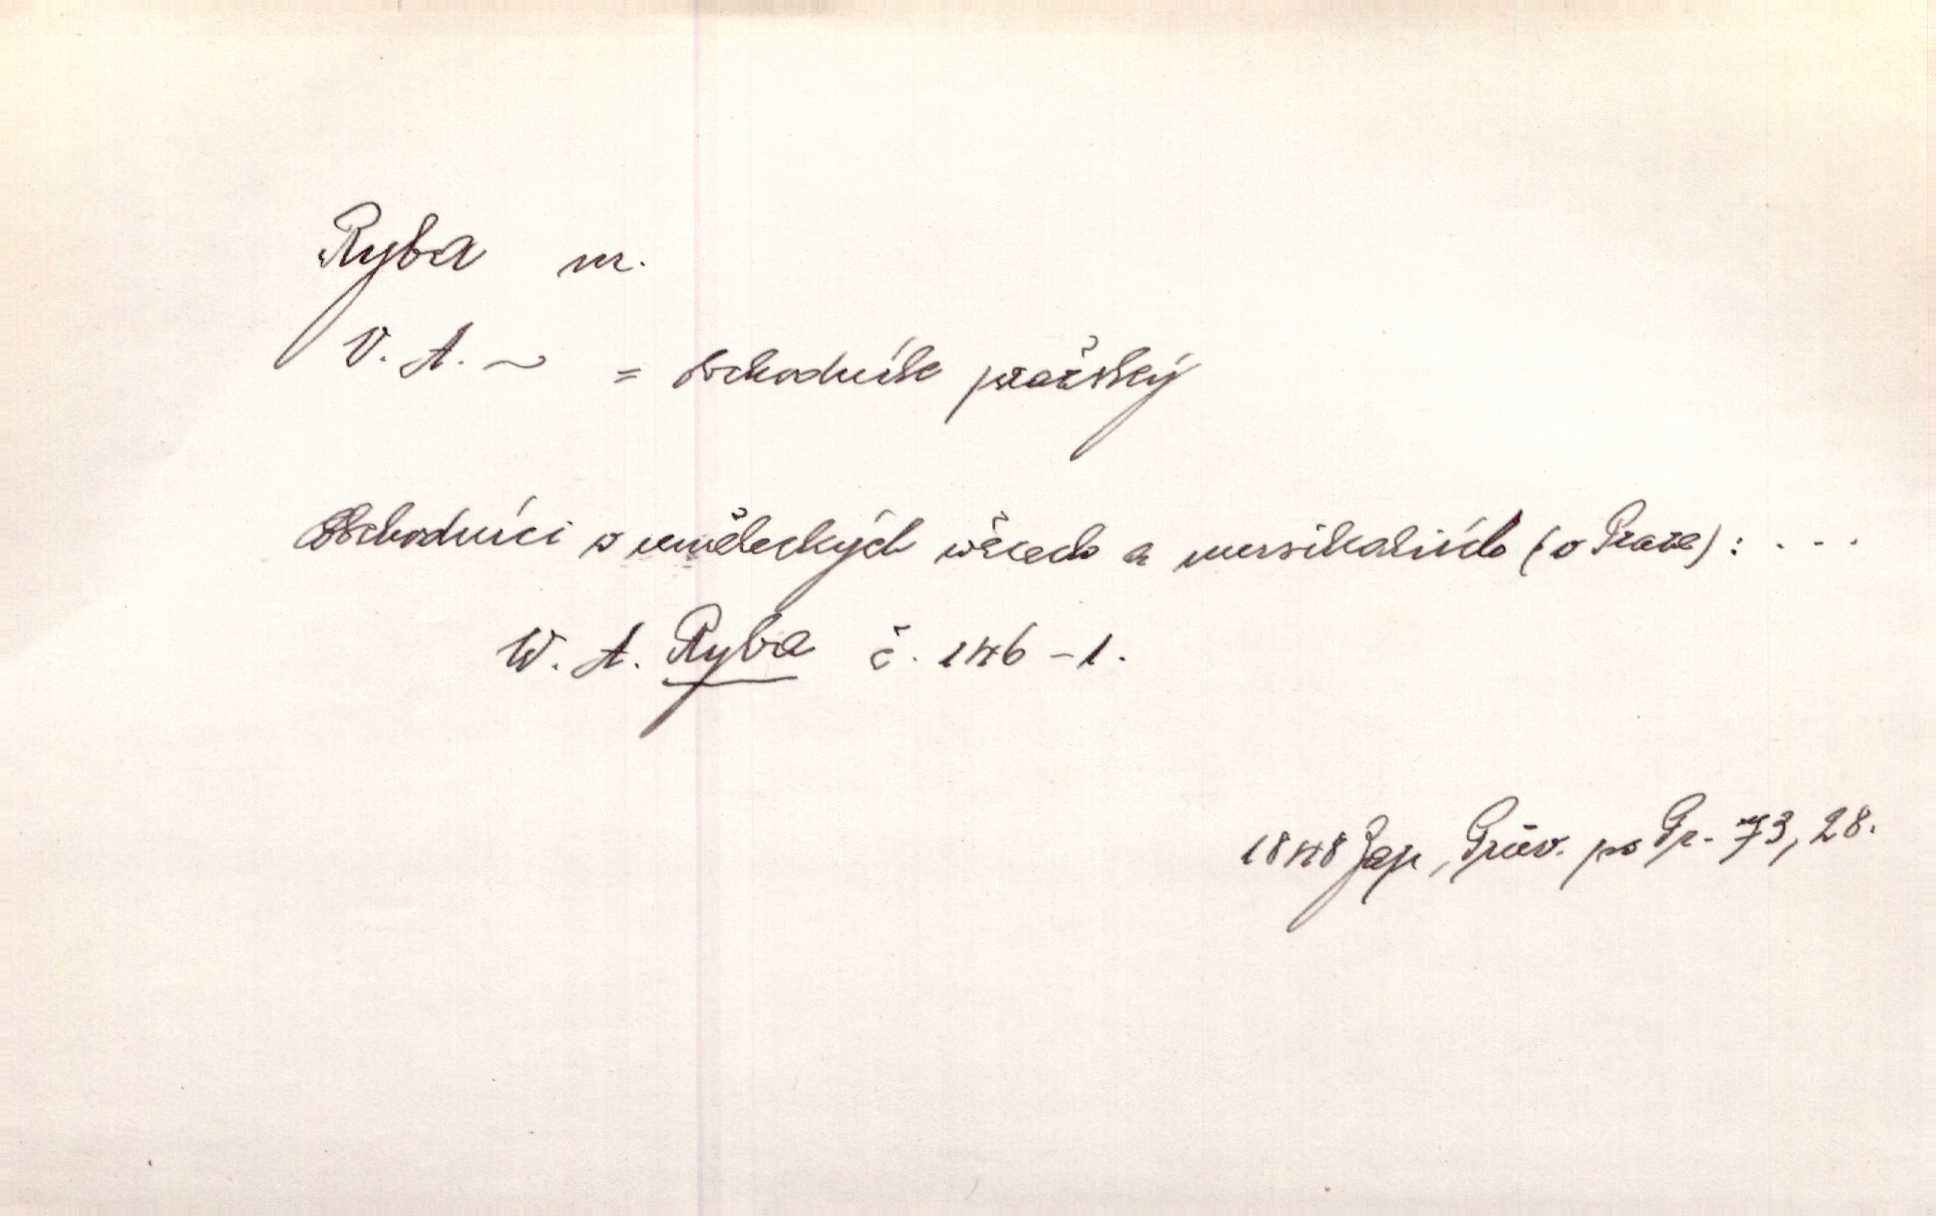 Ryba m.
V. A. ~ = obchodník pražský
Obchodníci w uměleckých wěcech a musikaliích (v Praze): ...
W. A. Ryba č. 146-1.
1848 Zap, Prův. po Pr. 73, 28.